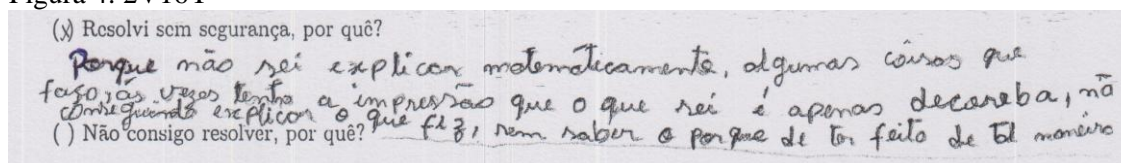 (x) Resolvi sem segurança, por quê?
Porque não sei explicar matematicamente, algumas coisas que
faço, às vezes tenho a impressão que o que sei é apenas decoreba, nã
conseguindo explicar o que fiz, nem saber o porque de ter feito de tal maneira
( ) Não consigo resolver, por quê?